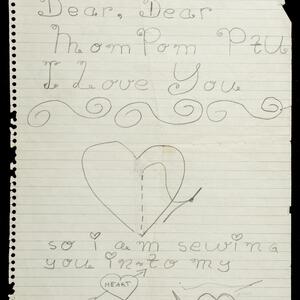 Dear, Dear
MomPom PzU
I Love You
so i am sewing
you in~to my
HEART